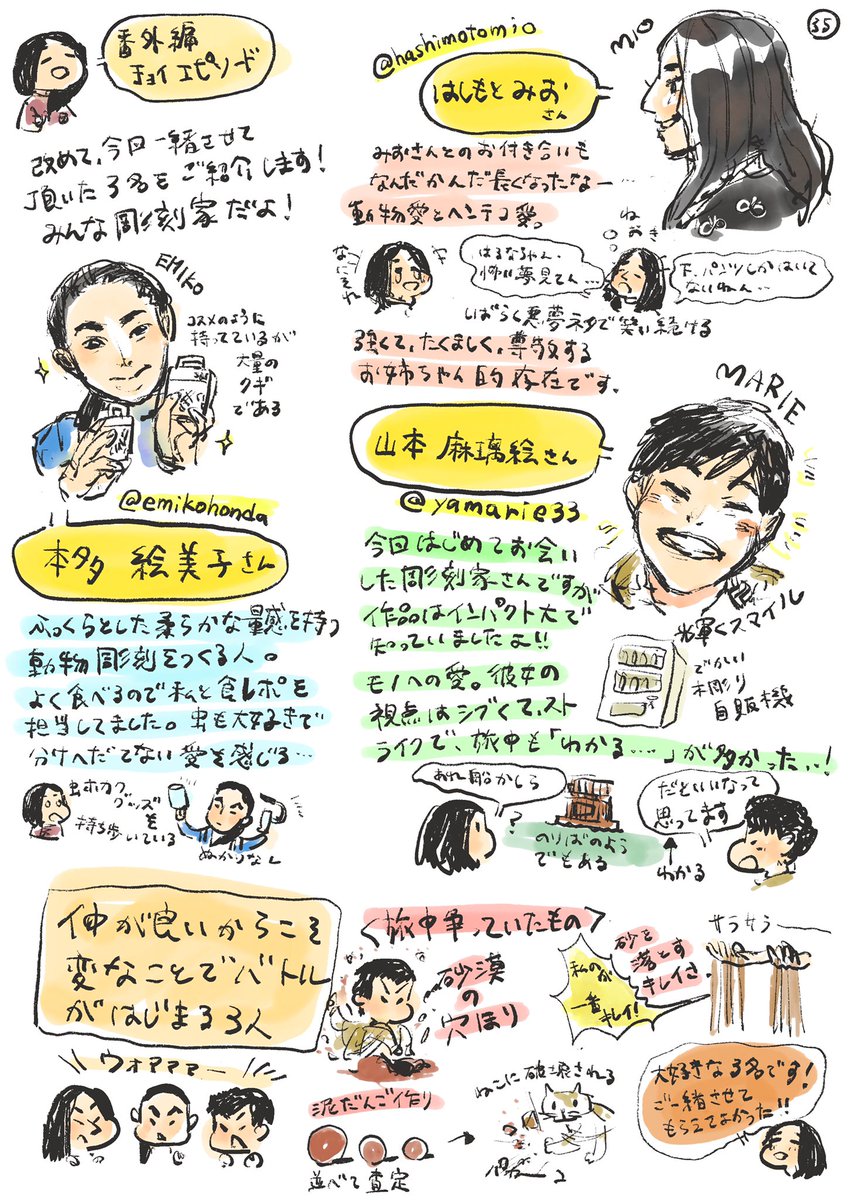 35
番外編
チョイエピソード
改めて、今回一緒させて
頂いた3名をご紹介します!
みんな彫刻家だよ!
EMIKO
コスメのように
持っているが
大量の
クギ
である
@emikohonda
本多 絵美子さん
ふっくらとした柔らかな量感を持つ
動物彫刻をつくる人。
よく食べるので私と食レポを
担当してました。虫も大好きで
分けへだてない愛を感じる…
虫ホカク
グッズを
持ち歩いている
ぬかりなし
@hashimotomio
はしもと みお
さん
MIO
みおさんとのお付き合いも
なんだかんだ長くなったなー…
動物愛とヘンテコ愛。
なにそれ
はるなちゃん、
怖い夢見てん…
ねおき
下、パンツしかはいて
ないねん…
しばらく悪夢ネタで笑い続ける
強くて、たくましく、尊敬する
お姉ちゃん的存在です。
MARIE
山本 麻璃絵さん
@yamarie33
今回はじめてお会い
した彫刻家さんですが
作品はインパクト大で
知っていましたよ!!
モノへの愛。彼女の
視点はシブくて、スト
ライクで、旅中も「わかる….」が多かった…!
輝くスマイル
でかい
木彫り
自販機
あれ船かしら
?
のりばのよう
でもある
だといいなって
思ってます
わかる
仲が良いからこそ
変なことでバトル
がはじまる3人
ウォアアアー
<旅中争っていたもの>
砂漠
の
穴ほり
私のが
一番
キレイ!
砂を
落とす
キレイさ
サラサラ
泥だんご作り
並べて査定
ねこに破壊される
大好きな3名です!
ご一緒させて
もらえてよかった!!